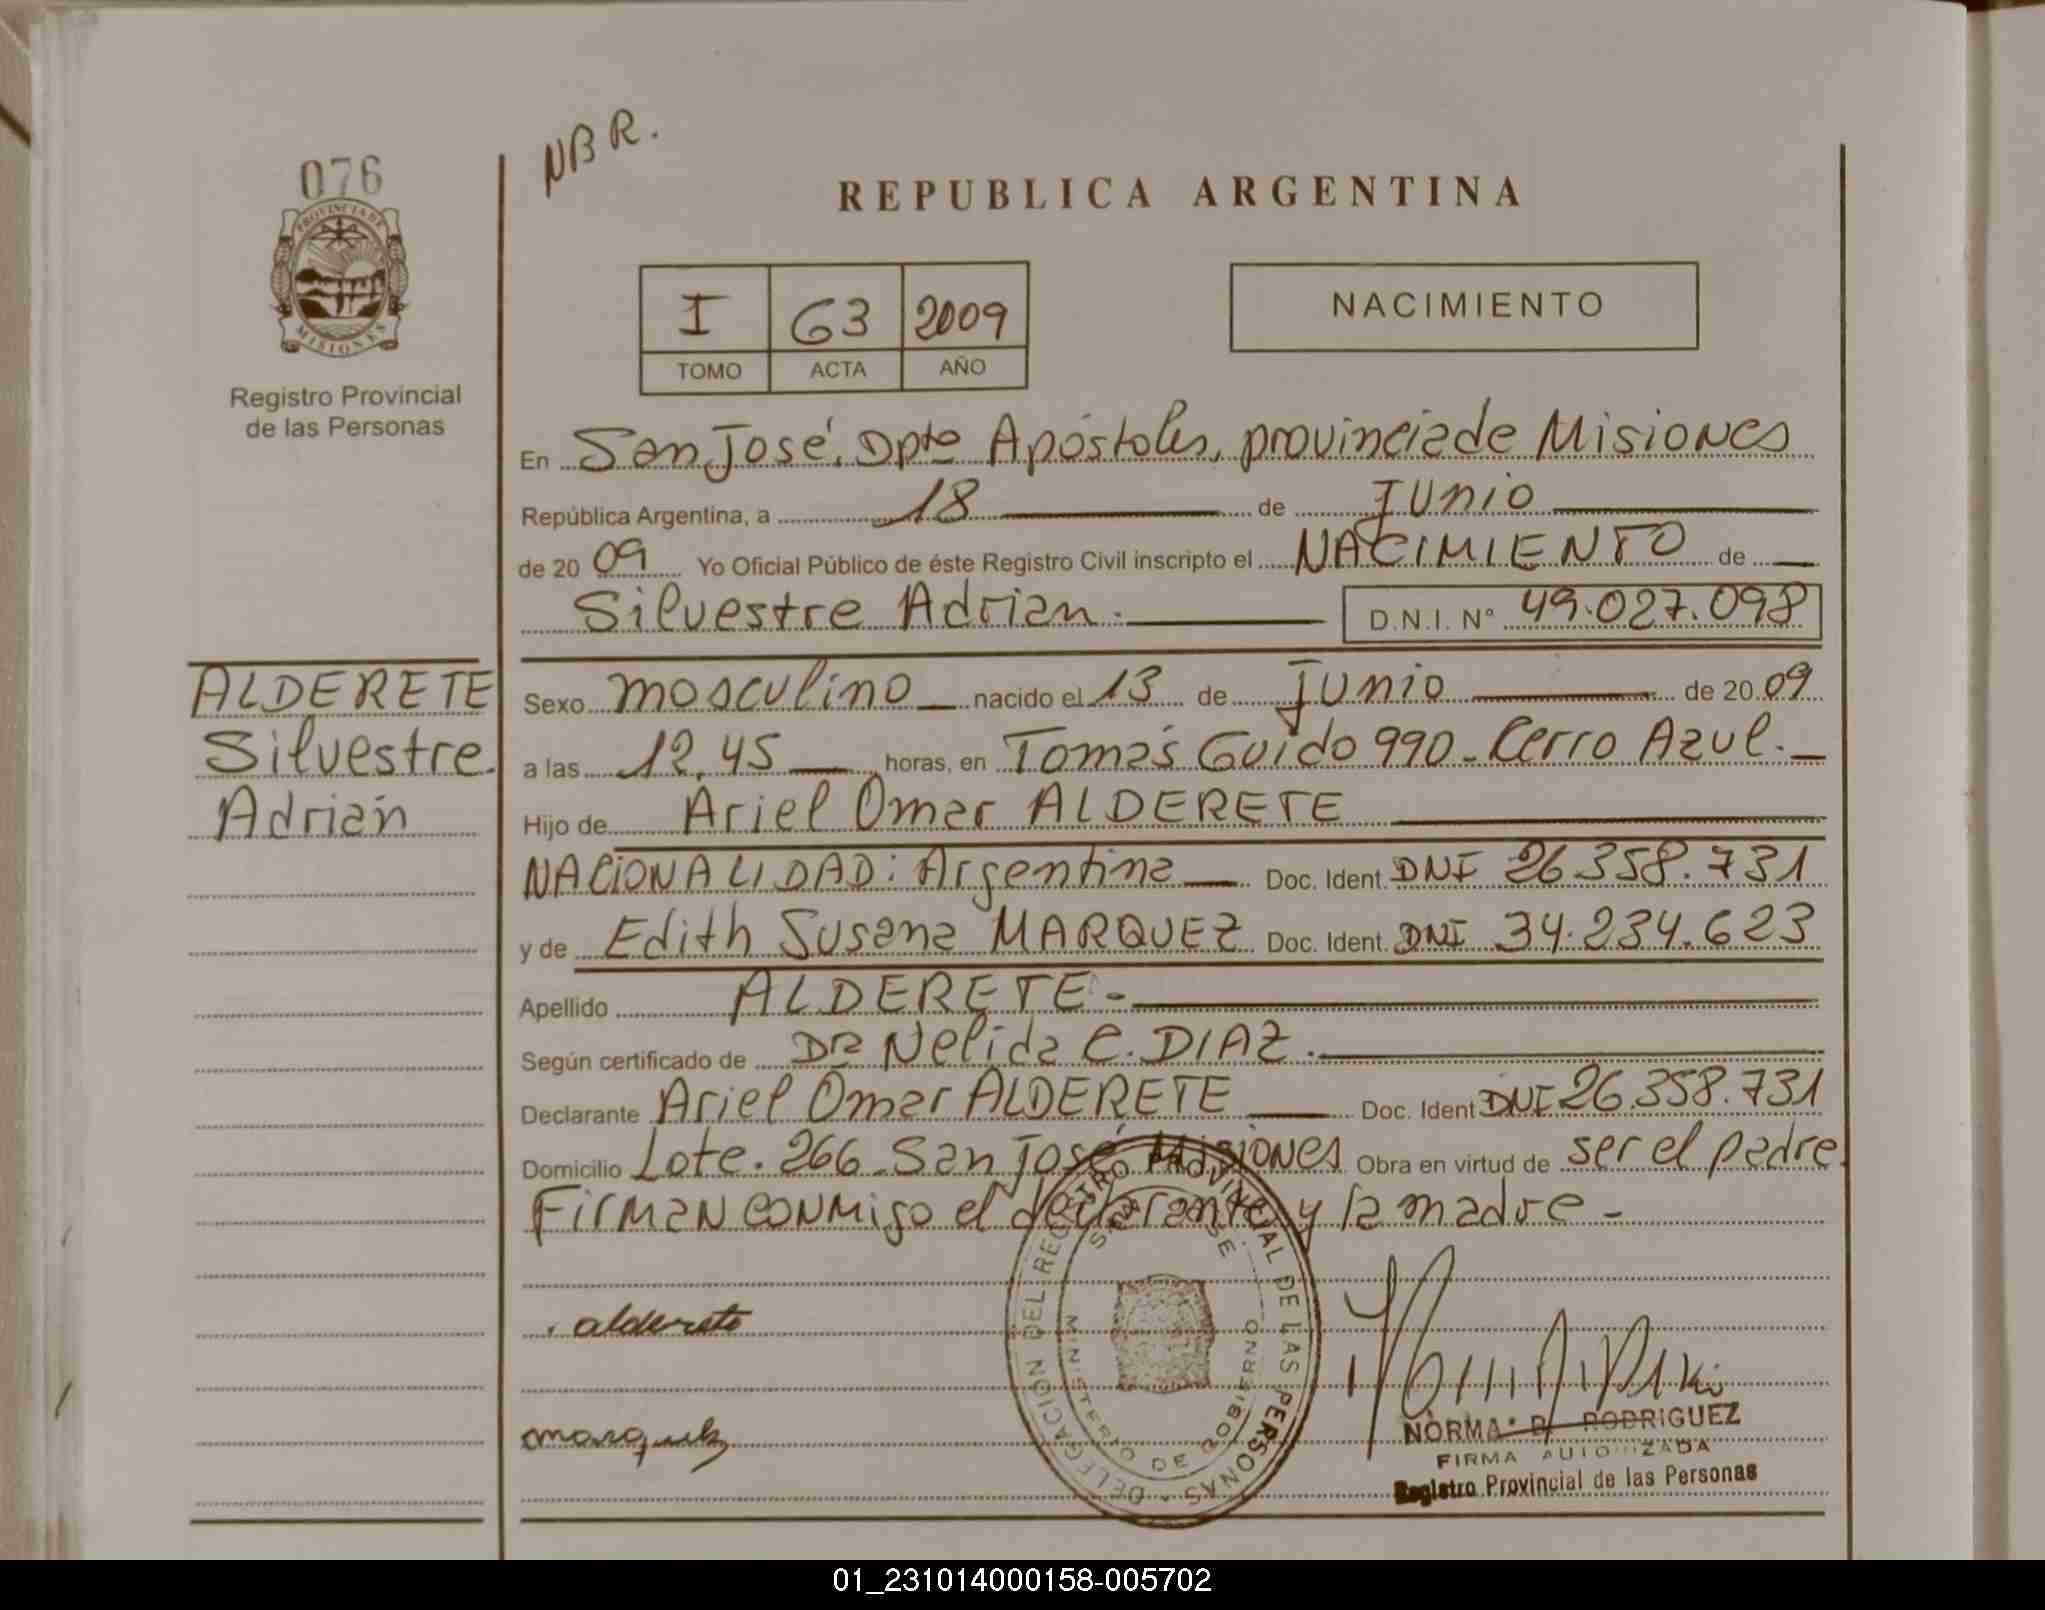 NBR.
076
PROVINCIA DE
MISIONES
Registro Provincial
de las Personas
REPUBLICA ARGENTINA
I 63 2009
TOMO ACTA AÑO
NACIMIENTO
En San José, Dpto Apóstoles, provincia de Misiones
República Argentina, a 18 de Junio
de 2009 Yo Oficial Público de éste Registro Civil inscripto el NACIMIENTO de
Silvestre Adrian. D.N.I. N° 49.027.098
ALDERETE
Silvestre
Adrián
Sexo masculino nacido el 13 de junio de 2009
a las 12,45 horas, en Tomás Guido 990 - Cerro Azul.
Hijo de Ariel Omar ALDERETE
NACIONALIDAD: Argentina Doc. Ident. DNI 26.358.731
y de Edith Susana MARQUEZ Doc. Ident. DNI 34.234.623
Apellido ALDERETE -
Según certificado de Dra Nelida C. DIAZ.
Declarante Ariel Omar ALDERETE Doc. Ident DNI 26.358.731
Domicilio Lote. 266 - San José Misiones Obra en virtud de ser el padre.
Firman conmigo el declarante y la madre -
DELEGACION DEL REGISTRO PROVINCIAL DE LAS PERSONAS
SAN JOSE
MINISTERIO DE GOBIERNO
alderete
marquez
NORMA B. RODRIGUEZ
FIRMA AUTORIZADA
Registro Provincial de las Personas
01_231014000158-005702